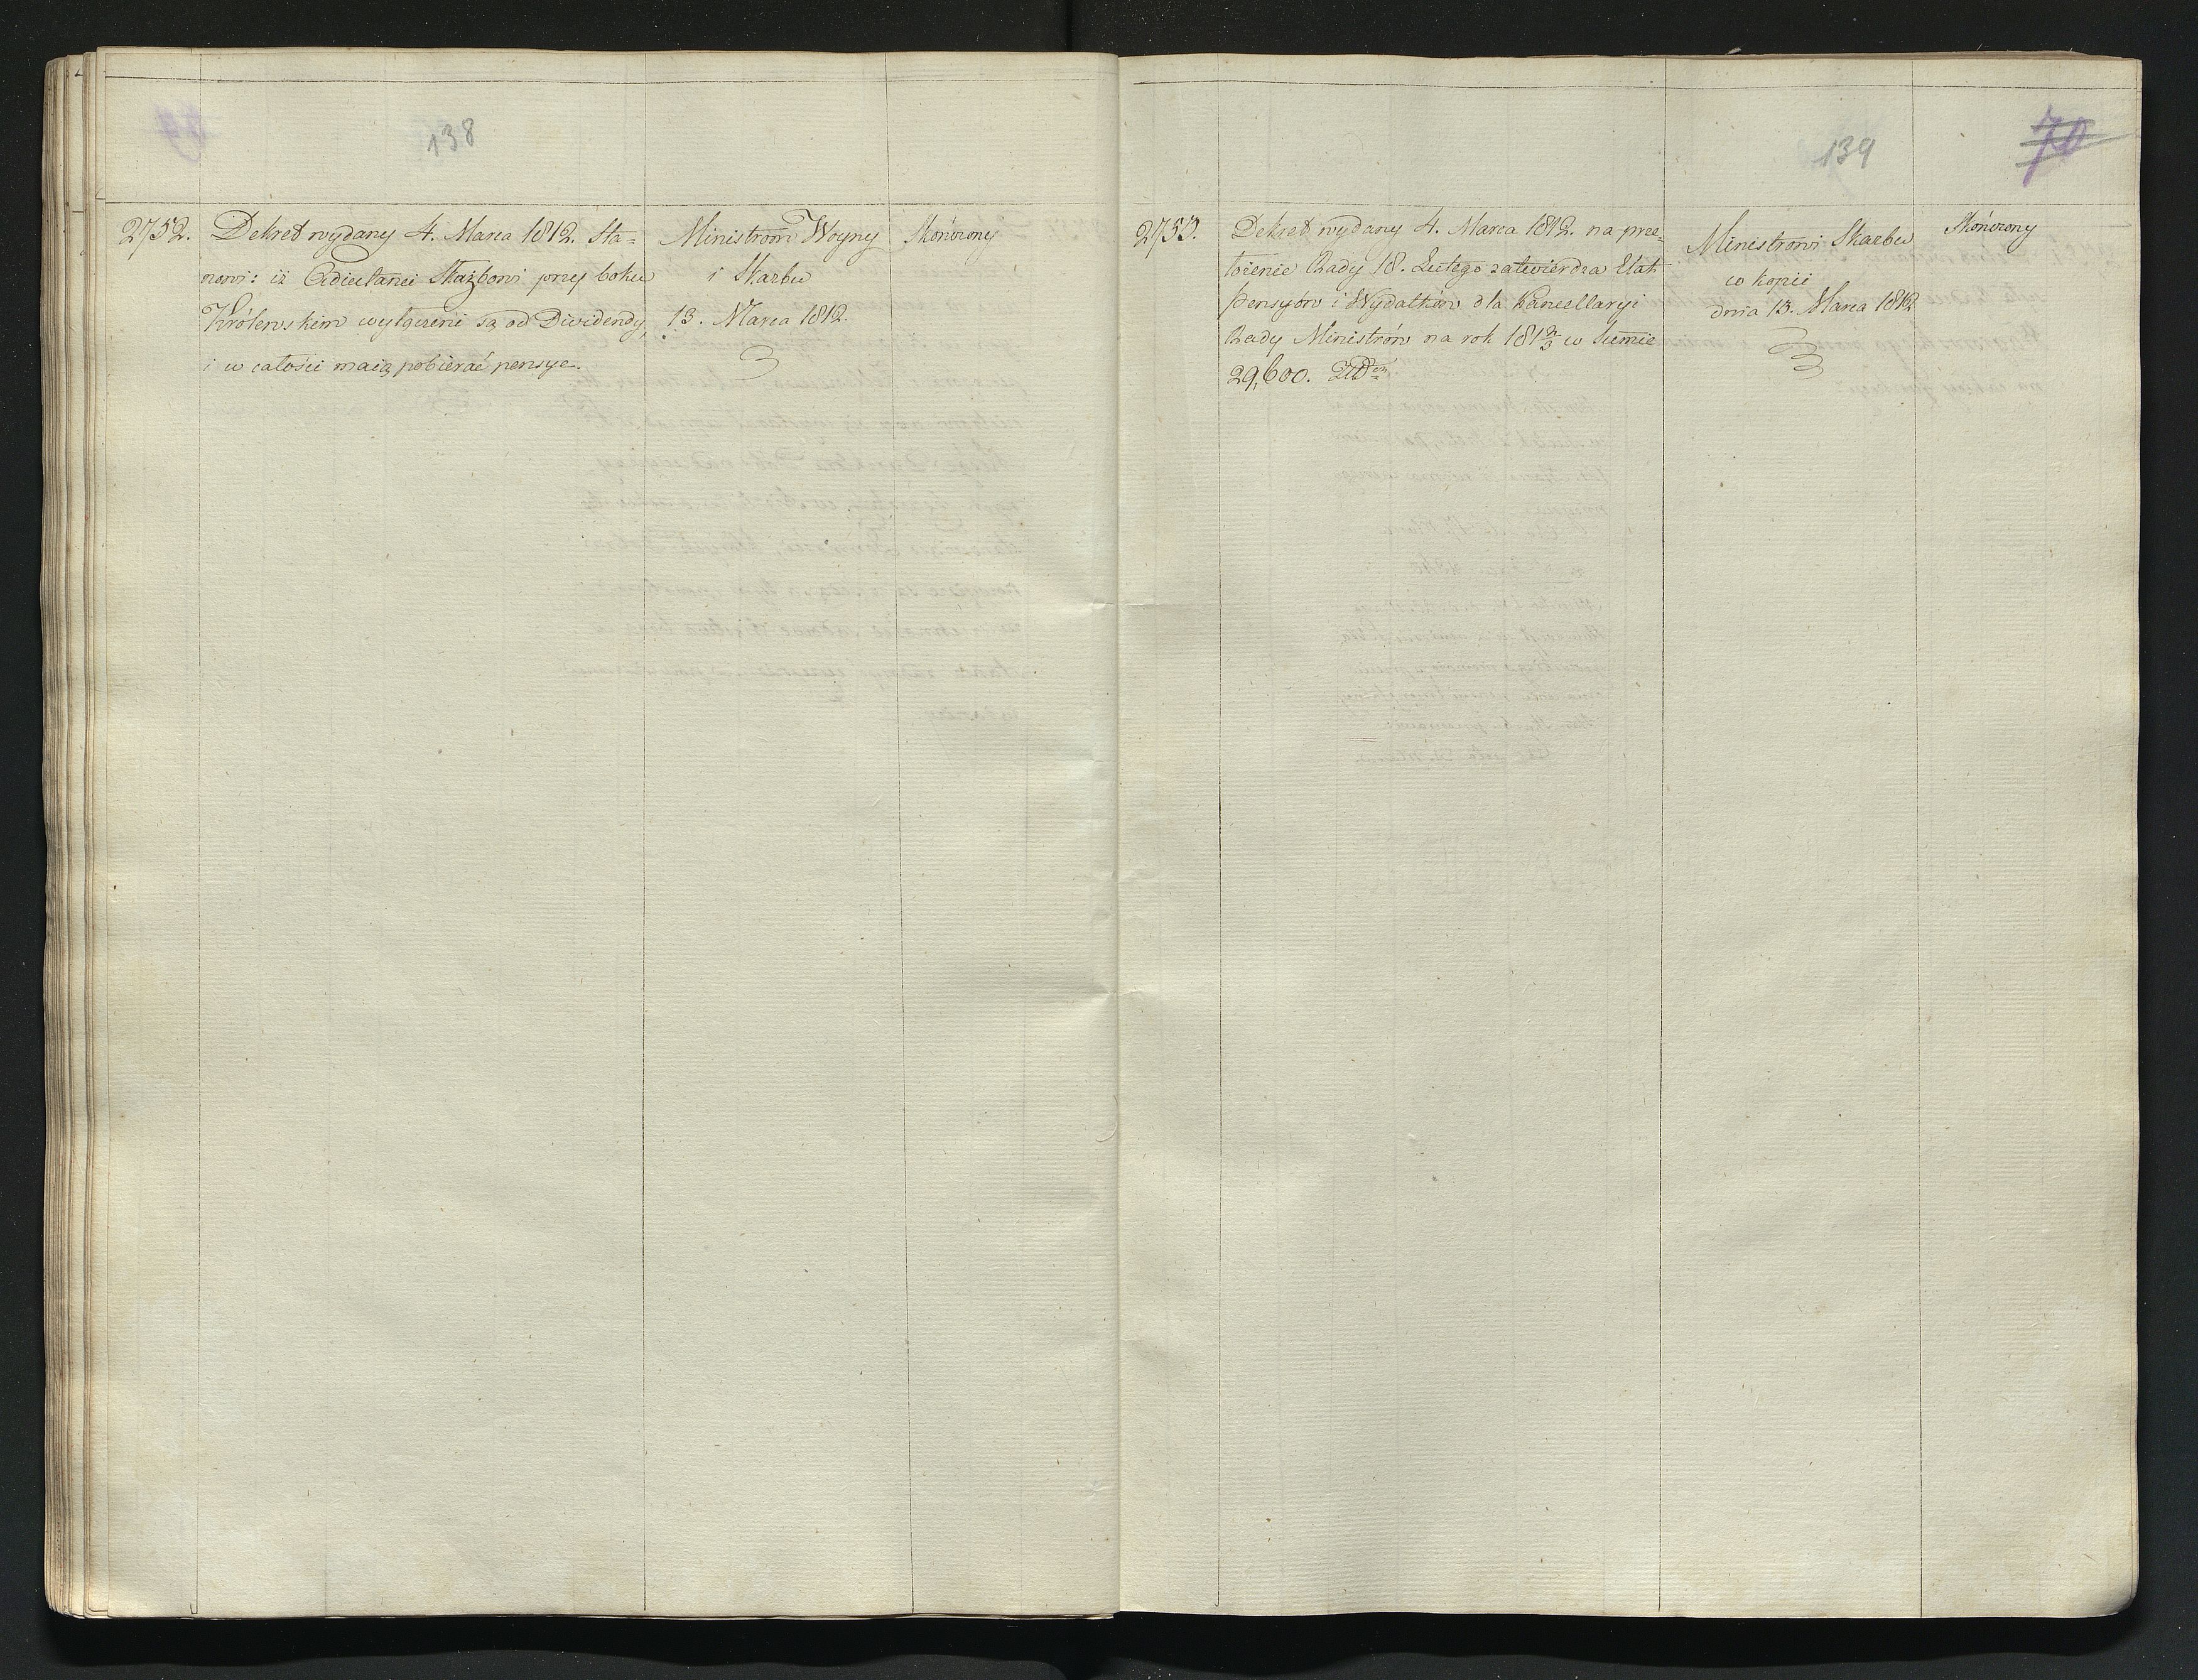 138
2752.
Dekret wydany 4. Marca 1812. sta=
nowi: iż Adiutanci Służbowi przy boku
Królewskim wyłączeni są od Dividendy,
i w całości maią pobierać pensye.
Ministrom Woyny
i Skarbu
13. Marca 1812.
Skończony
139
70
2753.
Dekret wydany 4. Marca 1812. na prze=
łożenie Rady 18. Lutego zatwierdza Etat
Pensyów i Wydatków dla Kancellaryi
Rady Ministrów na rok 181 2/3 w Sumie
29,600.
Ministrowi Skarbu
w kopii
dnia 13. Marca 1812
Skończony